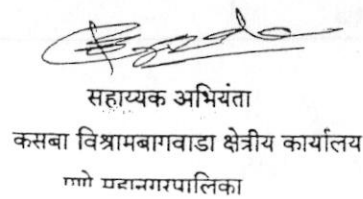 सहाय्यक अभियंता
कसबा विश्रामबागवाडा क्षेत्रीय कार्यालय
पुणे महानगरपालिका